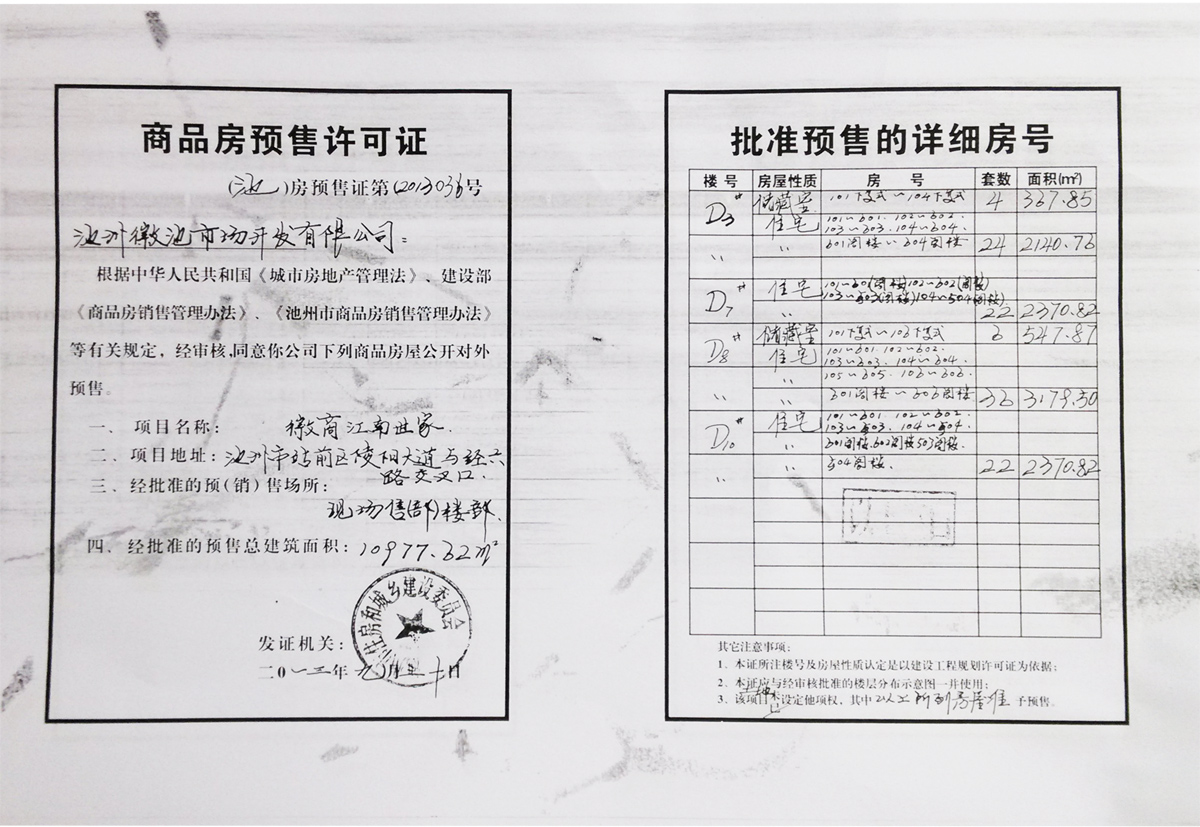 商品房预售许可证
(池)房预售证第(2013036号
池州徽池市场开发有限公司:
根据中华人民共和国《城市房地产管理法》、建设部
《商品房销售管理办法》、《池州市商品房销售管理办法》
等有关规定,经审核,同意你公司下列商品房屋公开对外
预售。
一、项目名称: 徽商江南世家.
二、项目地址:池州市站前区陵阳大道与经六
路交叉口.
三、经批准的预(销)售场所:
现场售(部)楼部.
四、经批准的预售总建筑面积:10977.62m²
住房和城乡建设委员会
发证机关:
二〇一三年九月三十日
批准预售的详细房号
楼号 房屋性质 房号 套数 面积(m²)
D3# 储藏室 101下复式~104下复式 4 367.85
住宅 101~601.102~602.
103~603.104~604.
〃 〃 601阁楼~604阁楼 24 2140.76
D7# 住宅 101~601(阁楼)102~602(阁楼)
103~503(阁楼)104~504(阁楼)
〃 22 2370.82
D8# 储藏室 101下复式~106下复式 6 547.87
住宅 101~601.102~602.
103~603.104~604.
〃 105~605.106~606.
〃 〃 601阁楼~606阁楼 36 3179.50
D10# 住宅 101~601.102~602.
103~503.104~504.
〃 601阁楼.602阁楼503阁楼.
〃 〃 504阁楼. 22 2370.82
其它注意事项:
1、本证所注楼号及房屋性质认定是以建设工程规划许可证为依据;
2、本证房与经审核批准的楼层分布示意图一并使用;
3、该项目未设定他项权,其中以上所列房屋准予预售。